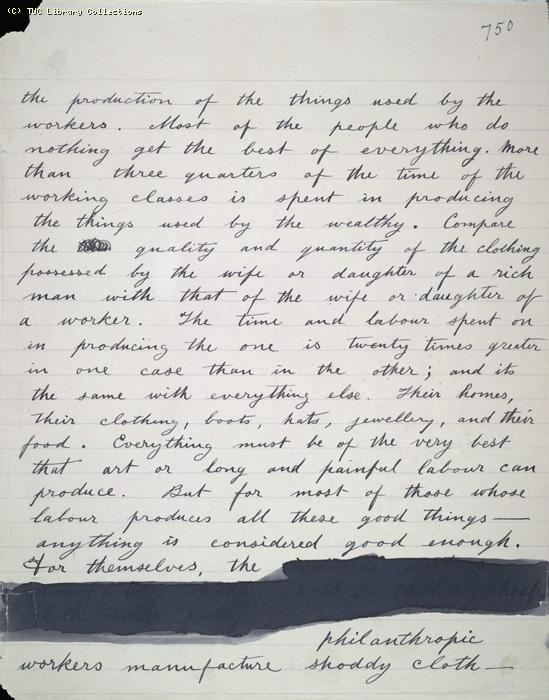 (C) TUC Library Collections
750
the production of the things used by the
workers. Most of the people who do
nothing get the best of everything. More
than three quarters of the time of the
working classes is spent in producing
the things used by the wealthy. Compare
the quality and quantity of the clothing
possessed by the wife or daughter of a rich
man with that of the wife or daughter of
a worker. The time and labour spent on
in producing the one is twenty times greater
in one case than in the other; and its
the same with everything else. Their homes,
their clothing, boots, hats, jewellery, and their
food. Everything must be of the very best
that art or long and painful labour can
produce. But for most of those whose
labour produces all these good things—
anything is considered good enough.
For themselves, the
manufacture shoddy cloth that is, cheap
cloth made
philanthropic
workers manufacture shoddy cloth—